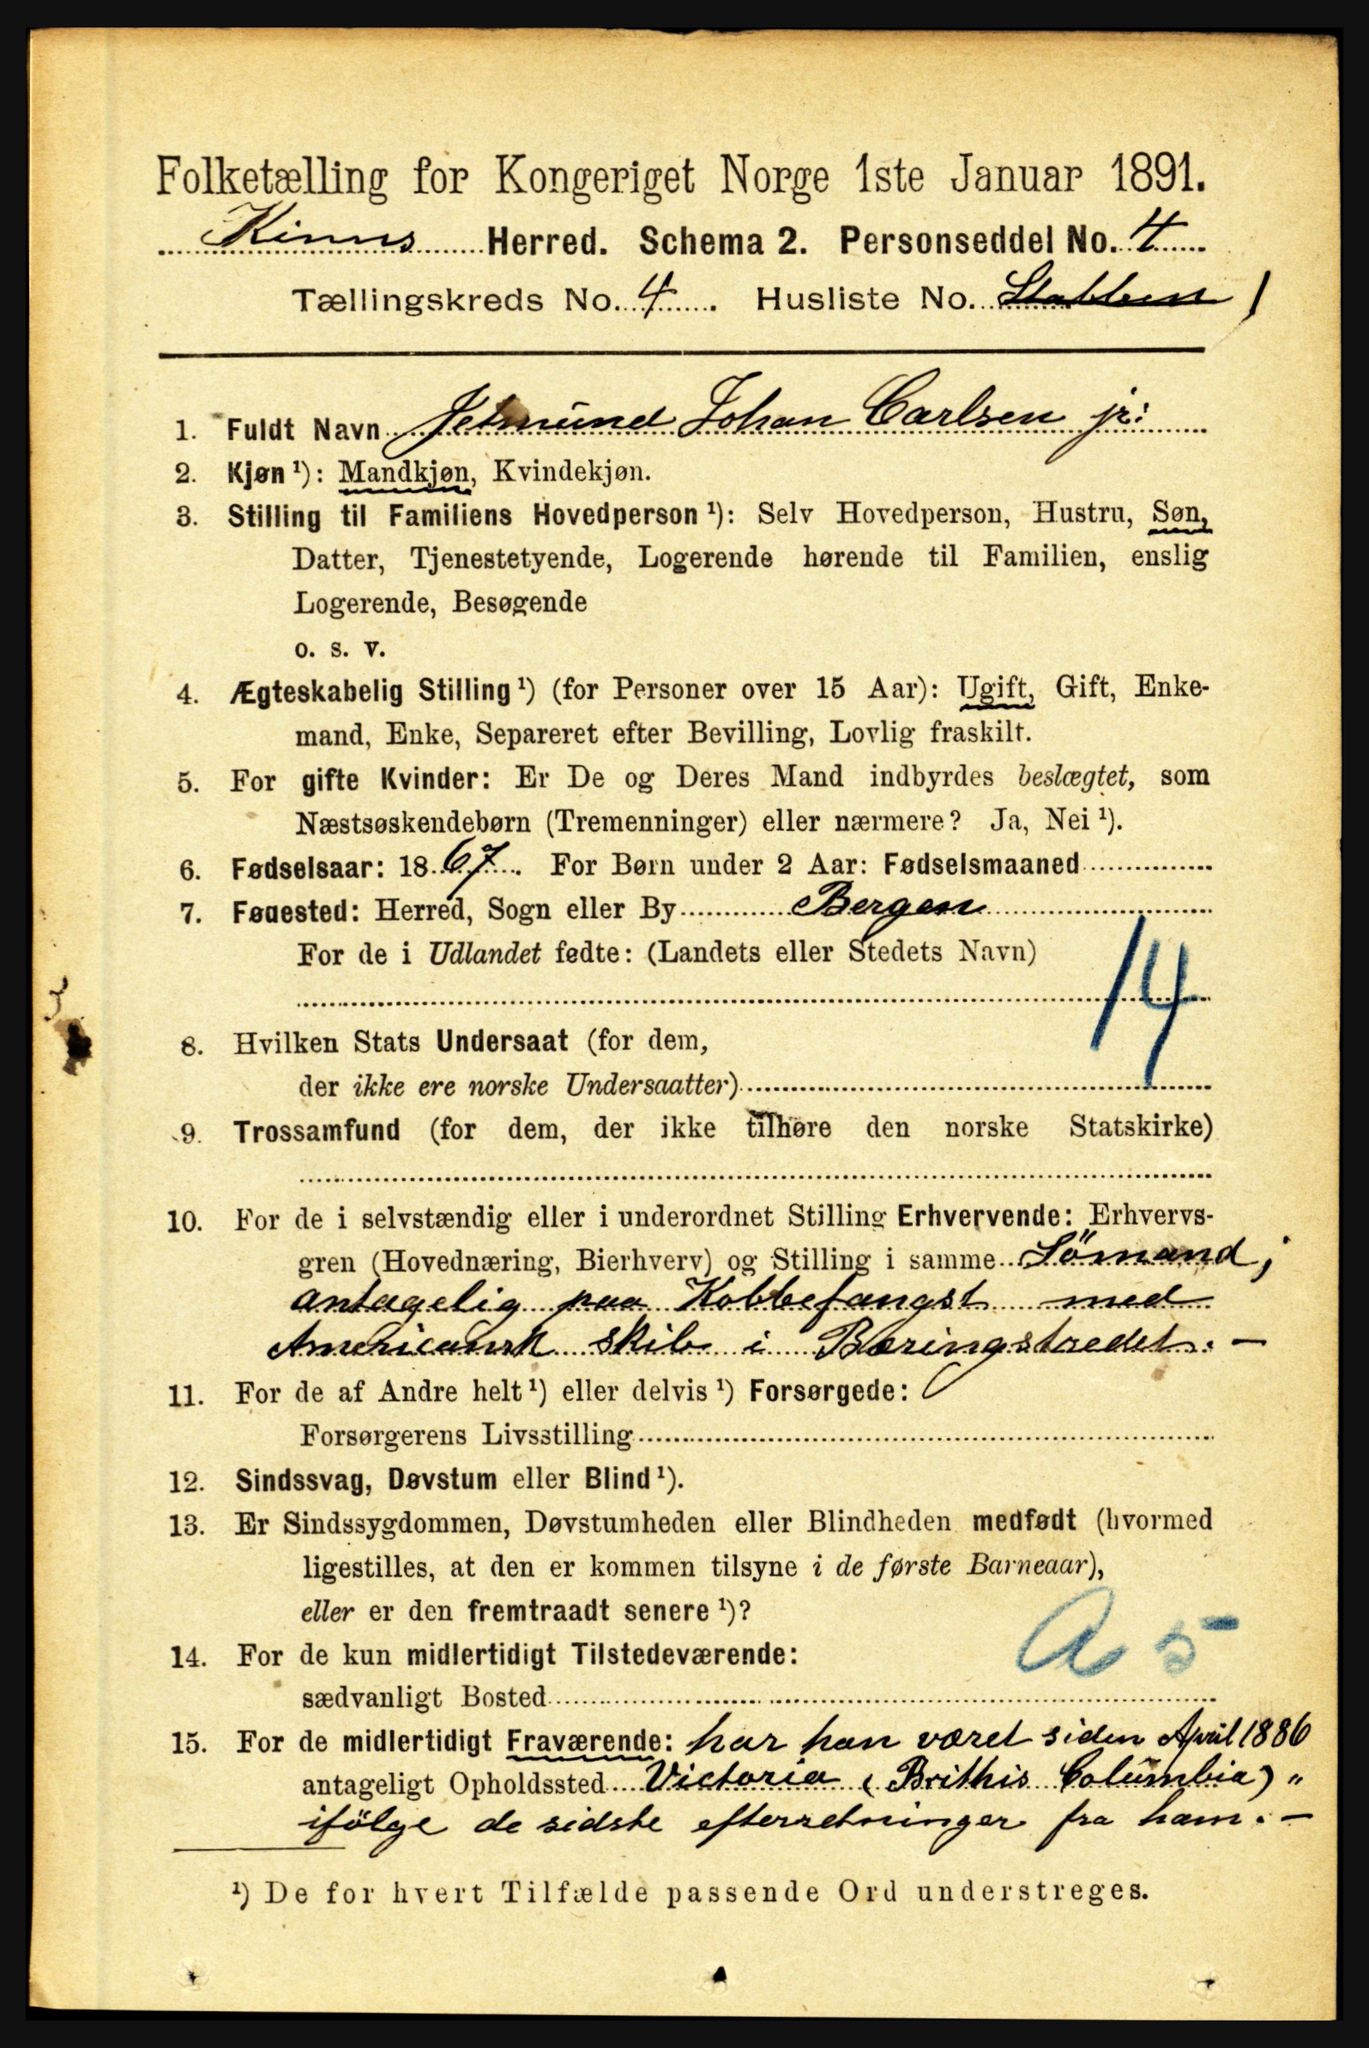 Folketælling for Kongeriget Norge 1ste Januar 1891.
Kinns Herred. Schema 2. Personseddel No. 4
Tællingskreds No. 4. Husliste No. Stabben 1
1. Fuldt Navn Jetmund Johan Carlsen jr:
2. Kjøn ¹): Mandkjøn, Kvindekjøn.
3. Stilling til Familiens Hovedperson ¹): Selv Hovedperson, Hustru, Søn,
Datter, Tjenestetyende, Logerende hørende til Familien, enslig
Logerende, Besøgende
o. s. v.
4. Ægteskabelig Stilling ¹) (for Personer over 15 Aar): Ugift, Gift, Enke-
mand, Enke, Separeret efter Bevilling, Lovlig fraskilt.
5. For gifte Kvinder: Er De og Deres Mand indbyrdes beslægtet, som
Næstsøskendebørn (Tremenninger) eller nærmere? Ja, Nei ¹).
6. Fødselsaar: 1867. For Børn under 2 Aar: Fødselsmaaned
7. Fødested: Herred, Sogn eller By Bergen
For de i Udlandet fødte: (Landets eller Stedets Navn)
14
8. Hvilken Stats Undersaat (for dem,
der ikke ere norske Undersaatter)
9. Trossamfund (for dem, der ikke tilhøre den norske Statskirke)
10. For de i selvstændig eller i underordnet Stilling Erhvervende: Erhvervs-
gren (Hovednæring, Bierhverv) og Stilling i samme Sömand;
antagelig paa Kobbefangst med
Americansk skib i Bæringstredet. -
11. For de af Andre helt ¹) eller delvis ¹) Forsørgede:
Forsørgerens Livsstilling
12. Sindssvag, Døvstum eller Blind ¹).
13. Er Sindssygdommen, Døvstumheden eller Blindheden medfødt (hvormed
ligestilles, at den er kommen tilsyne i de første Barneaar),
eller er den fremtraadt senere ¹)?
A 5
14. For de kun midlertidigt Tilstedeværende:
sædvanligt Bosted
15. For de midlertidigt Fraværende: har han været siden April 1886
antageligt Opholdssted Victoria (Brithis Columbia) "
ifölge de sidste efterretninger fra ham. -
¹) De for hvert Tilfælde passende Ord understreges.